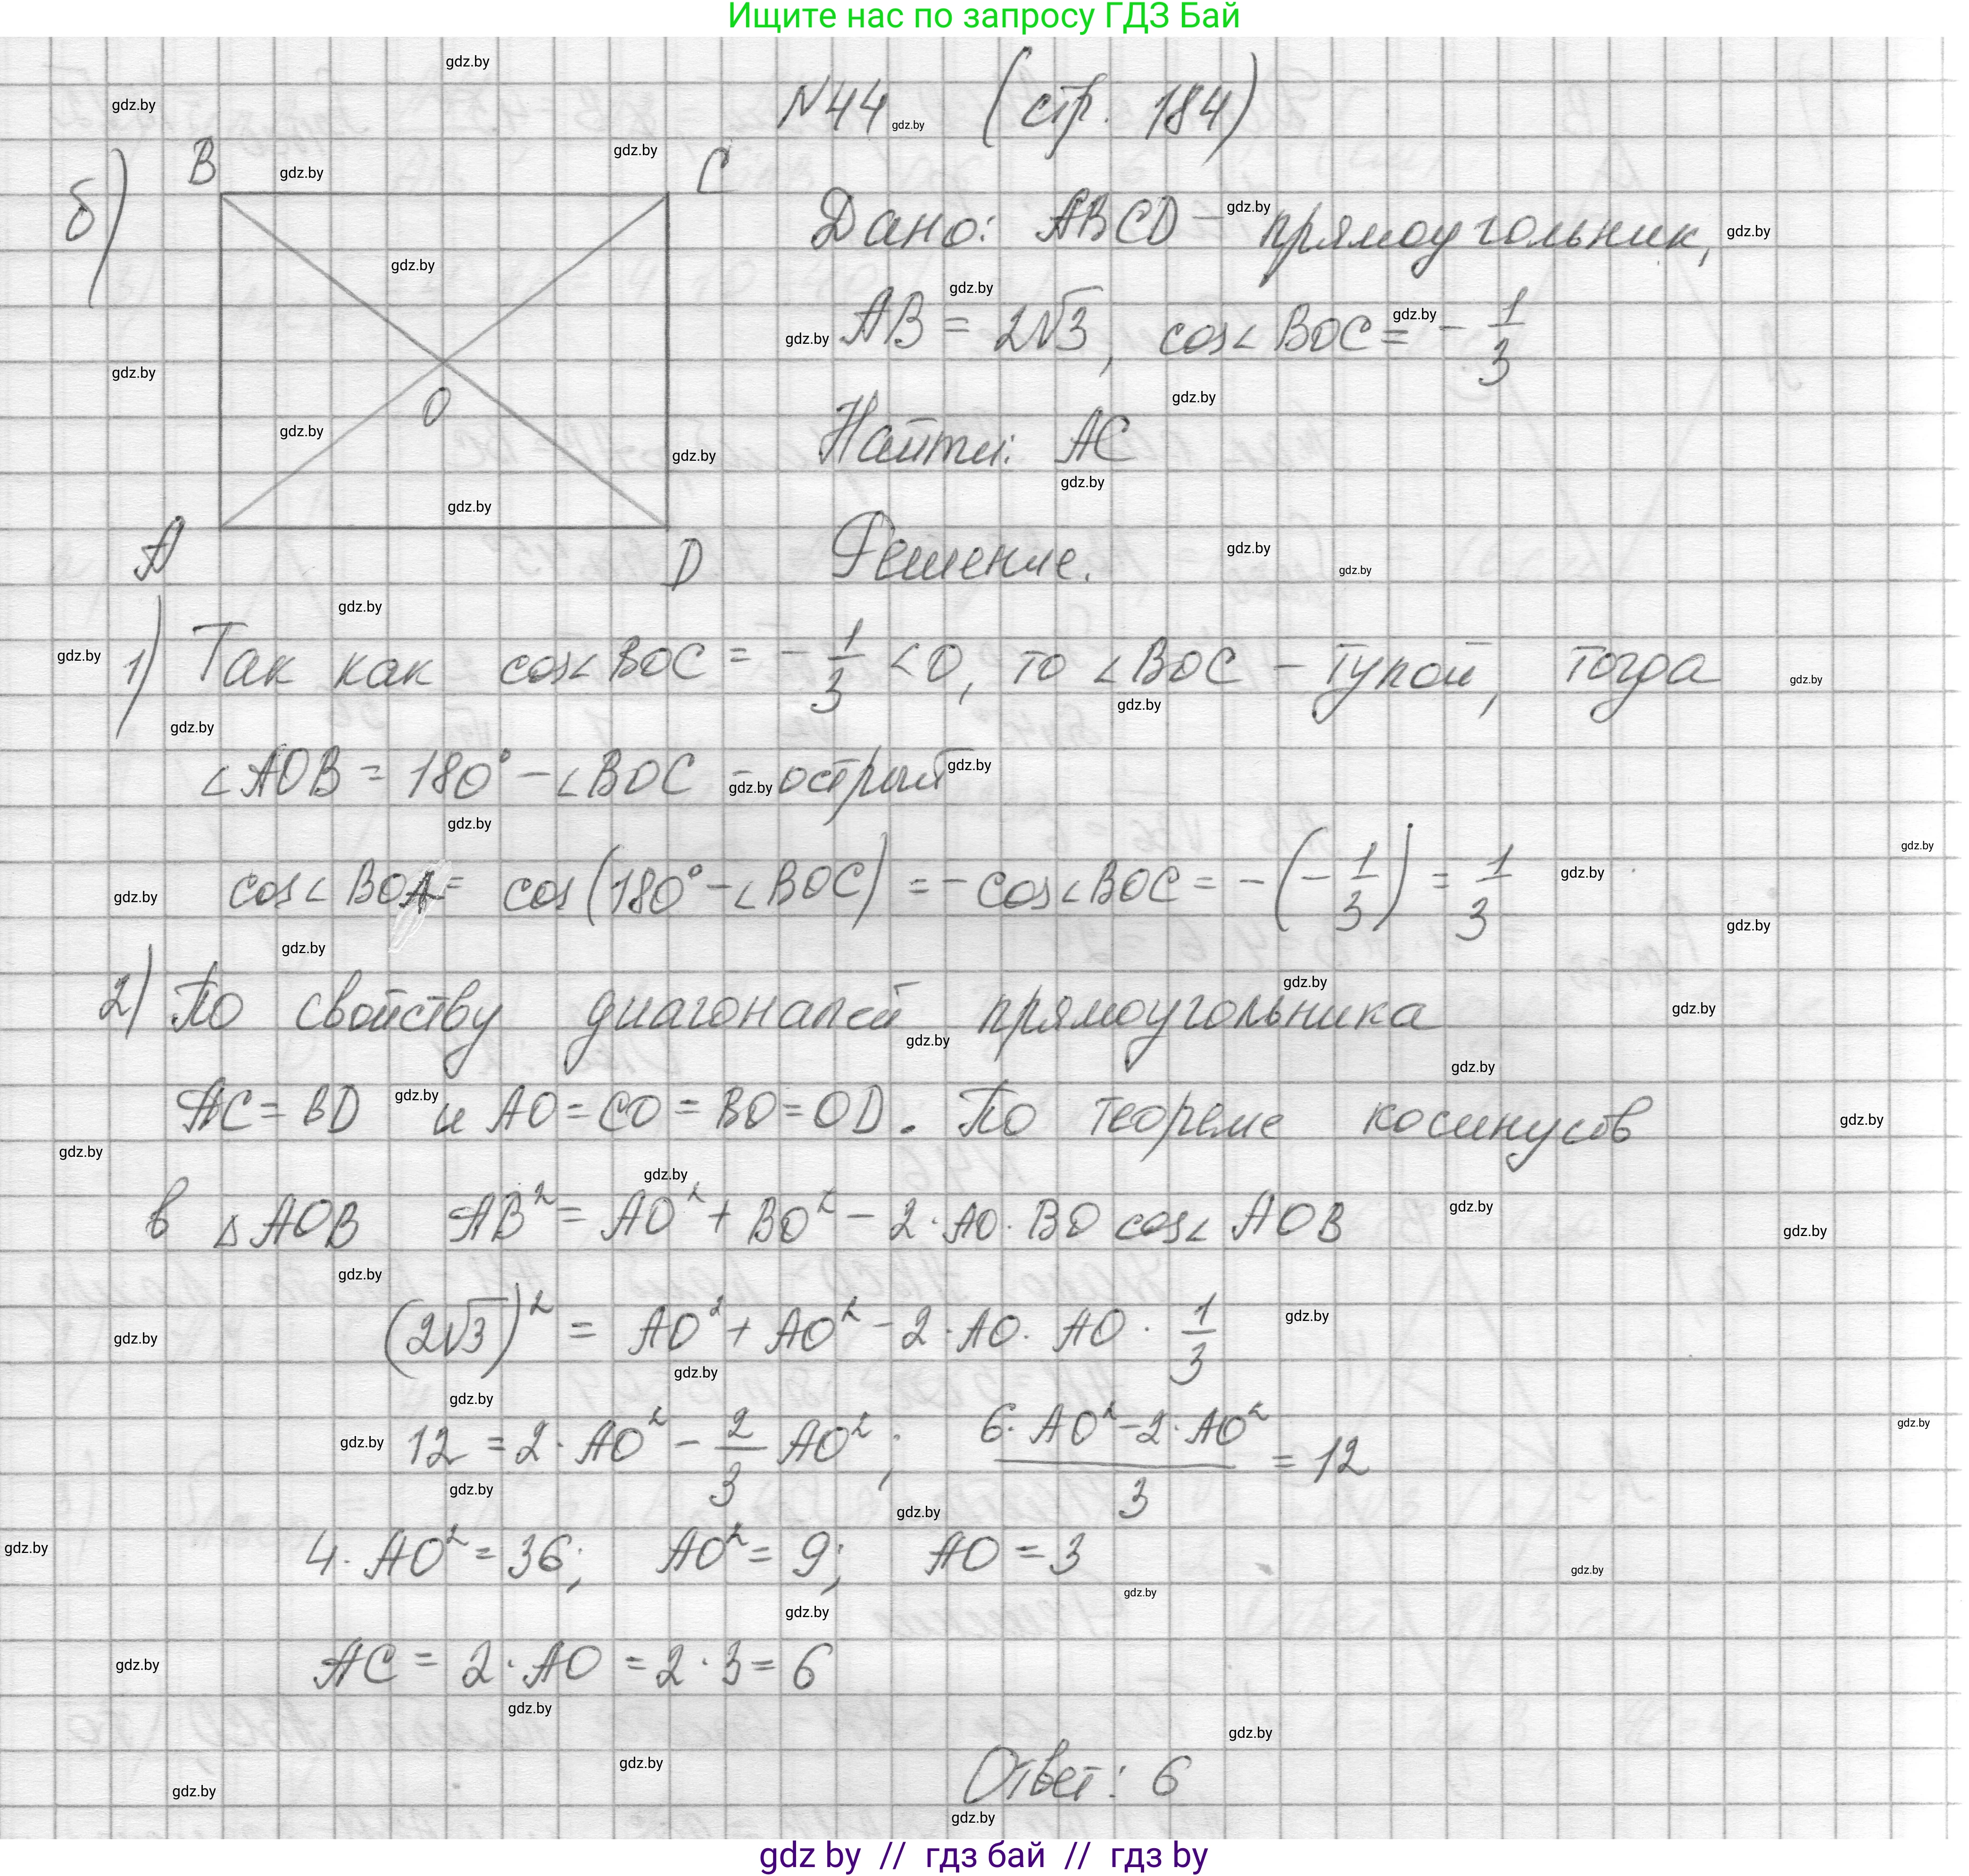 Ищите нас по запросу ГДЗ Бай
N44 (стр. 184)
б)
B C
O
A D
Дано: ABCD – прямоугольник,
AB = 2√3, cos∠BOC = -1/3
Найти: AC
Решение.
1) Так как cos∠BOC = -1/3 <0, то ∠BOC – тупой, тогда
∠AOB = 180° – ∠BOC – острый
cos∠BOA = cos(180° – ∠BOC) = -cos∠BOC = -(-1/3) = 1/3
2) По свойству диагоналей прямоугольника
AC = BD и AO = CO = BO = OD. По теореме косинусов
в △AOB AB² = AO² + BO² – 2·AO·BO cos∠AOB
(2√3)² = AO² + AO² – 2·AO·AO·1/3
12 = 2·AO² – 2/3 AO²; (6·AO² – 2·AO²)/3 = 12
4·AO² = 36; AO² = 9; AO = 3
AC = 2·AO = 2·3 = 6
Ответ: 6
gdz.by
gdz by // гдз бай // гдз by